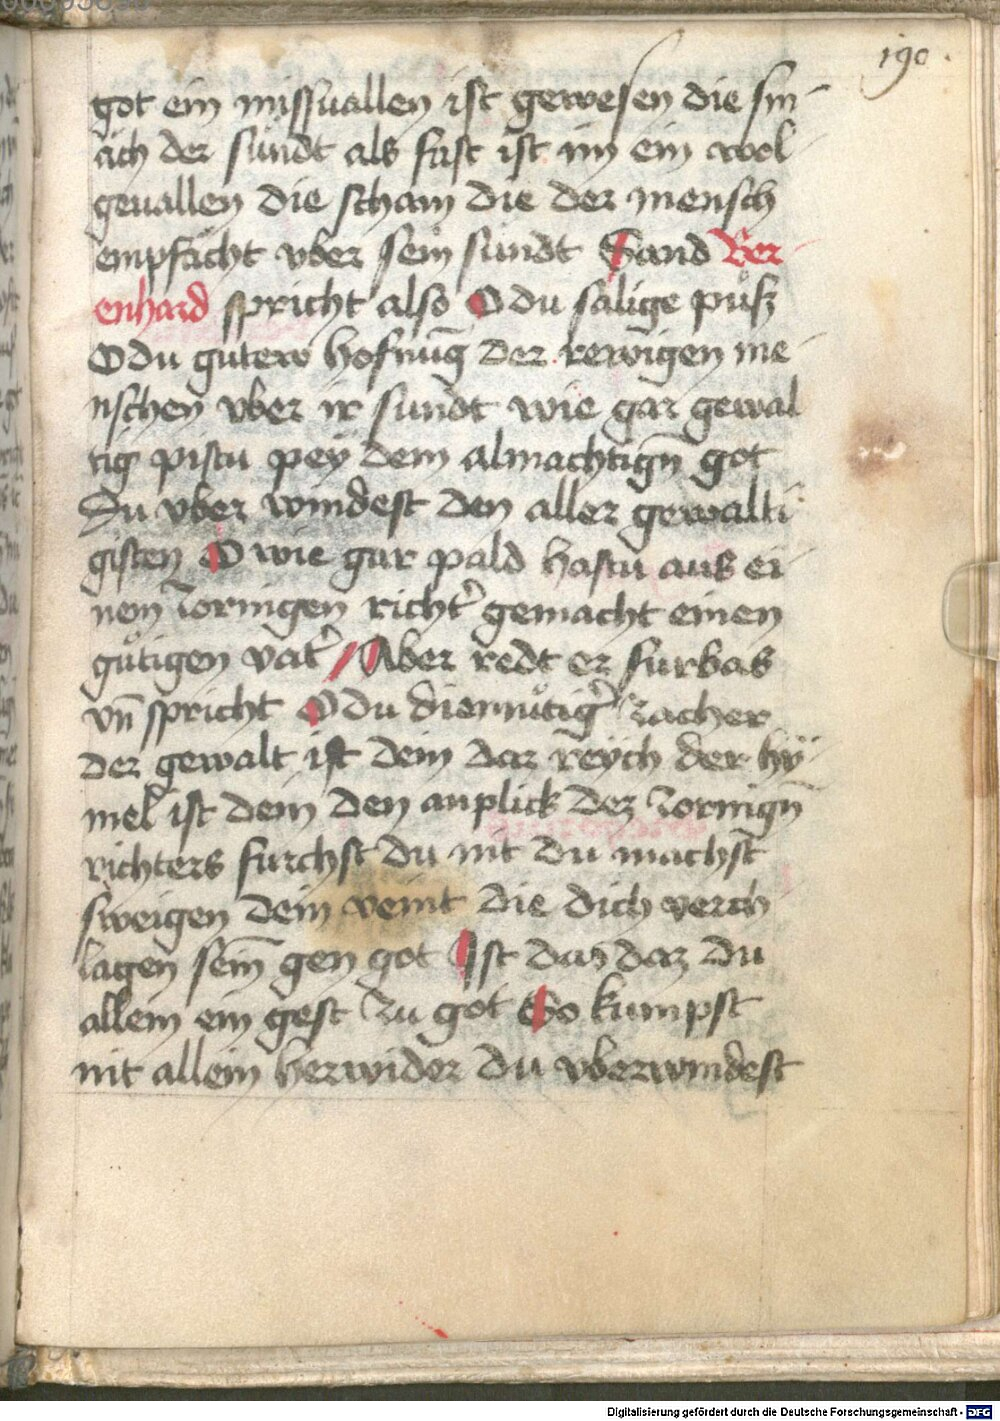 190.
got ein missuallen ist gewesen die sm
ach der sündt als fast ist im ein wol
geuallen die scham die der mensch
empfächt vber sein sündt Sand Ber
enhard spricht also O du sälige půsz
O du gutew hofnūg der rewigen me
nschen vber ir sundt wie gar gewal
tig pistu pey dem almachtign̄ got
Du vber windest den aller gewalti
gisten O wie gar pald hastu aus ei
nem zornigen richt' gemacht einen
gůtigen vat' // Aber redt er furbas
vn̄ spricht O du diemůtig' zacher
der gewalt ist dein daz reych der hy
mel ist dein den anplick dez zornign̄
richters furchst du nit du machst
sweigen dein veint die dich verch
lagen sein gen got Ist das daz du
allein ein gest zu got So kumpst
nit allein herwider du vberwindest
Digitalisierung gefördert durch die Deutsche Forschungsgemeinschaft - DFG